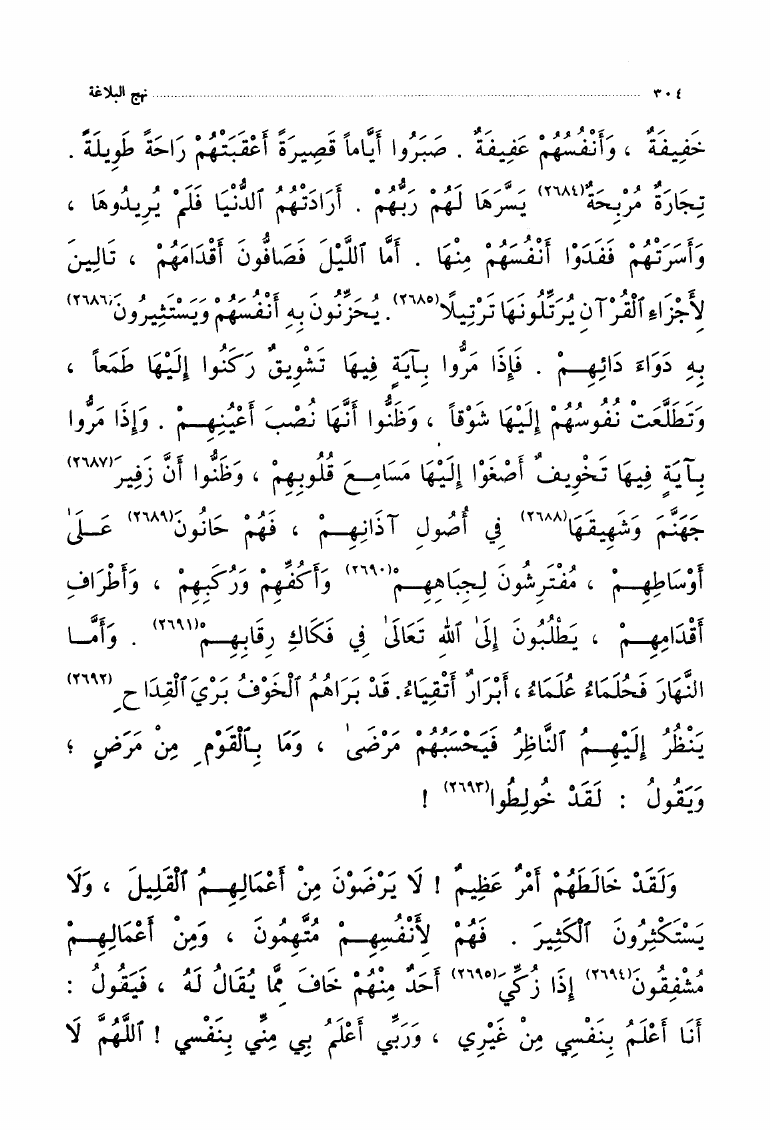 ٣٠٤ ........ نهج البلاغة
خَفِيفَةٌ ، وَأَنْفُسُهُمْ عَفِيفَةٌ . صَبَرُوا أَيَّاماً قَصِيرَةً أَعْقَبَتْهُمْ رَاحَةً طَوِيلَةً .
تِجَارَةٌ مُرْبِحَةٌ(٢٦٨٤) يَسَّرَهَا لَهُمْ رَبُّهُمْ . أَرَادَتْهُمُ ٱلدُّنْيَا فَلَمْ يُرِيدُوهَا ،
وَأَسَرَتْهُمْ فَفَدَوْا أَنْفُسَهُمْ مِنْهَا . أَمَّا ٱللَّيْلَ فَصَافُّونَ أَقْدَامَهُمْ ، تَالِينَ
لِأَجْزَاءِ ٱلْقُرْآنِ يُرَتِّلُونَهَا تَرْتِيلًا(٢٦٨٥). يُحَزِّنُونَ بِهِ أَنْفُسَهُمْ وَيَسْتَثِيرُونَ(٢٦٨٦)
بِهِ دَوَاءَ دَائِهِمْ . فَإِذَا مَرُّوا بِآيَةٍ فِيهَا تَشْوِيقٌ رَكَنُوا إِلَيْهَا طَمَعاً ،
وَتَطَلَّعَتْ نُفُوسُهُمْ إِلَيْهَا شَوْقاً ، وَظَنُّوا أَنَّهَا نُصْبَ أَعْيُنِهِمْ . وَإِذَا مَرُّوا
بِآيَةٍ فِيهَا تَخْوِيفٌ أَصْغَوْا إِلَيْهَا مَسَامِعَ قُلُوبِهِمْ ، وَظَنُّوا أَنَّ زَفِيرَ(٢٦٨٧)
جَهَنَّمَ وَشَهِيقَهَا(٢٦٨٨) فِي أُصُولِ آذَانِهِمْ ، فَهُمْ حَانُونَ(٢٦٨٩) عَلَىٰ
أَوْسَاطِهِمْ ، مُفْتَرِشُونَ لِجِبَاهِهِمْ(٢٦٩٠) وَأَكُفِّهِمْ وَرُكَبِهِمْ ، وَأَطْرَافِ
أَقْدَامِهِمْ ، يَطْلُبُونَ إِلَىٰ ٱللهِ تَعَالَىٰ فِي فَكَاكِ رِقَابِهِمْ(٢٦٩١) . وَأَمَّا
النَّهَارَ فَحُلَمَاءُ عُلَمَاءُ ، أَبْرَارٌ أَتْقِيَاءُ. قَدْ بَرَاهُمُ ٱلْخَوْفُ بَرْيَ ٱلْقِدَاحِ(٢٦٩٢)
يَنْظُرُ إِلَيْهِمُ ٱلنَّاظِرُ فَيَحْسَبُهُمْ مَرْضَىٰ ، وَمَا بِٱلْقَوْمِ مِنْ مَرَضٍ ؛
وَيَقُولُ : لَقَدْ خُولِطُوا(٢٦٩٣) !
وَلَقَدْ خَالَطَهُمْ أَمْرٌ عَظِيمٌ ! لَا يَرْضَوْنَ مِنْ أَعْمَالِهِمُ ٱلْقَلِيلَ ، وَلَا
يَسْتَكْثِرُونَ ٱلْكَثِيرَ . فَهُمْ لِأَنْفُسِهِمْ مُتَّهِمُونَ ، وَمِنْ أَعْمَالِهِمْ
مُشْفِقُونَ(٢٦٩٤) إِذَا زُكِّيَ(٢٦٩٥) أَحَدٌ مِنْهُمْ خَافَ مِمَّا يُقَالُ لَهُ ، فَيَقُولُ :
أَنَا أَعْلَمُ بِنَفْسِي مِنْ غَيْرِي ، وَرَبِّي أَعْلَمُ بِي مِنِّي بِنَفْسِي ! ٱللَّهُمَّ لَا